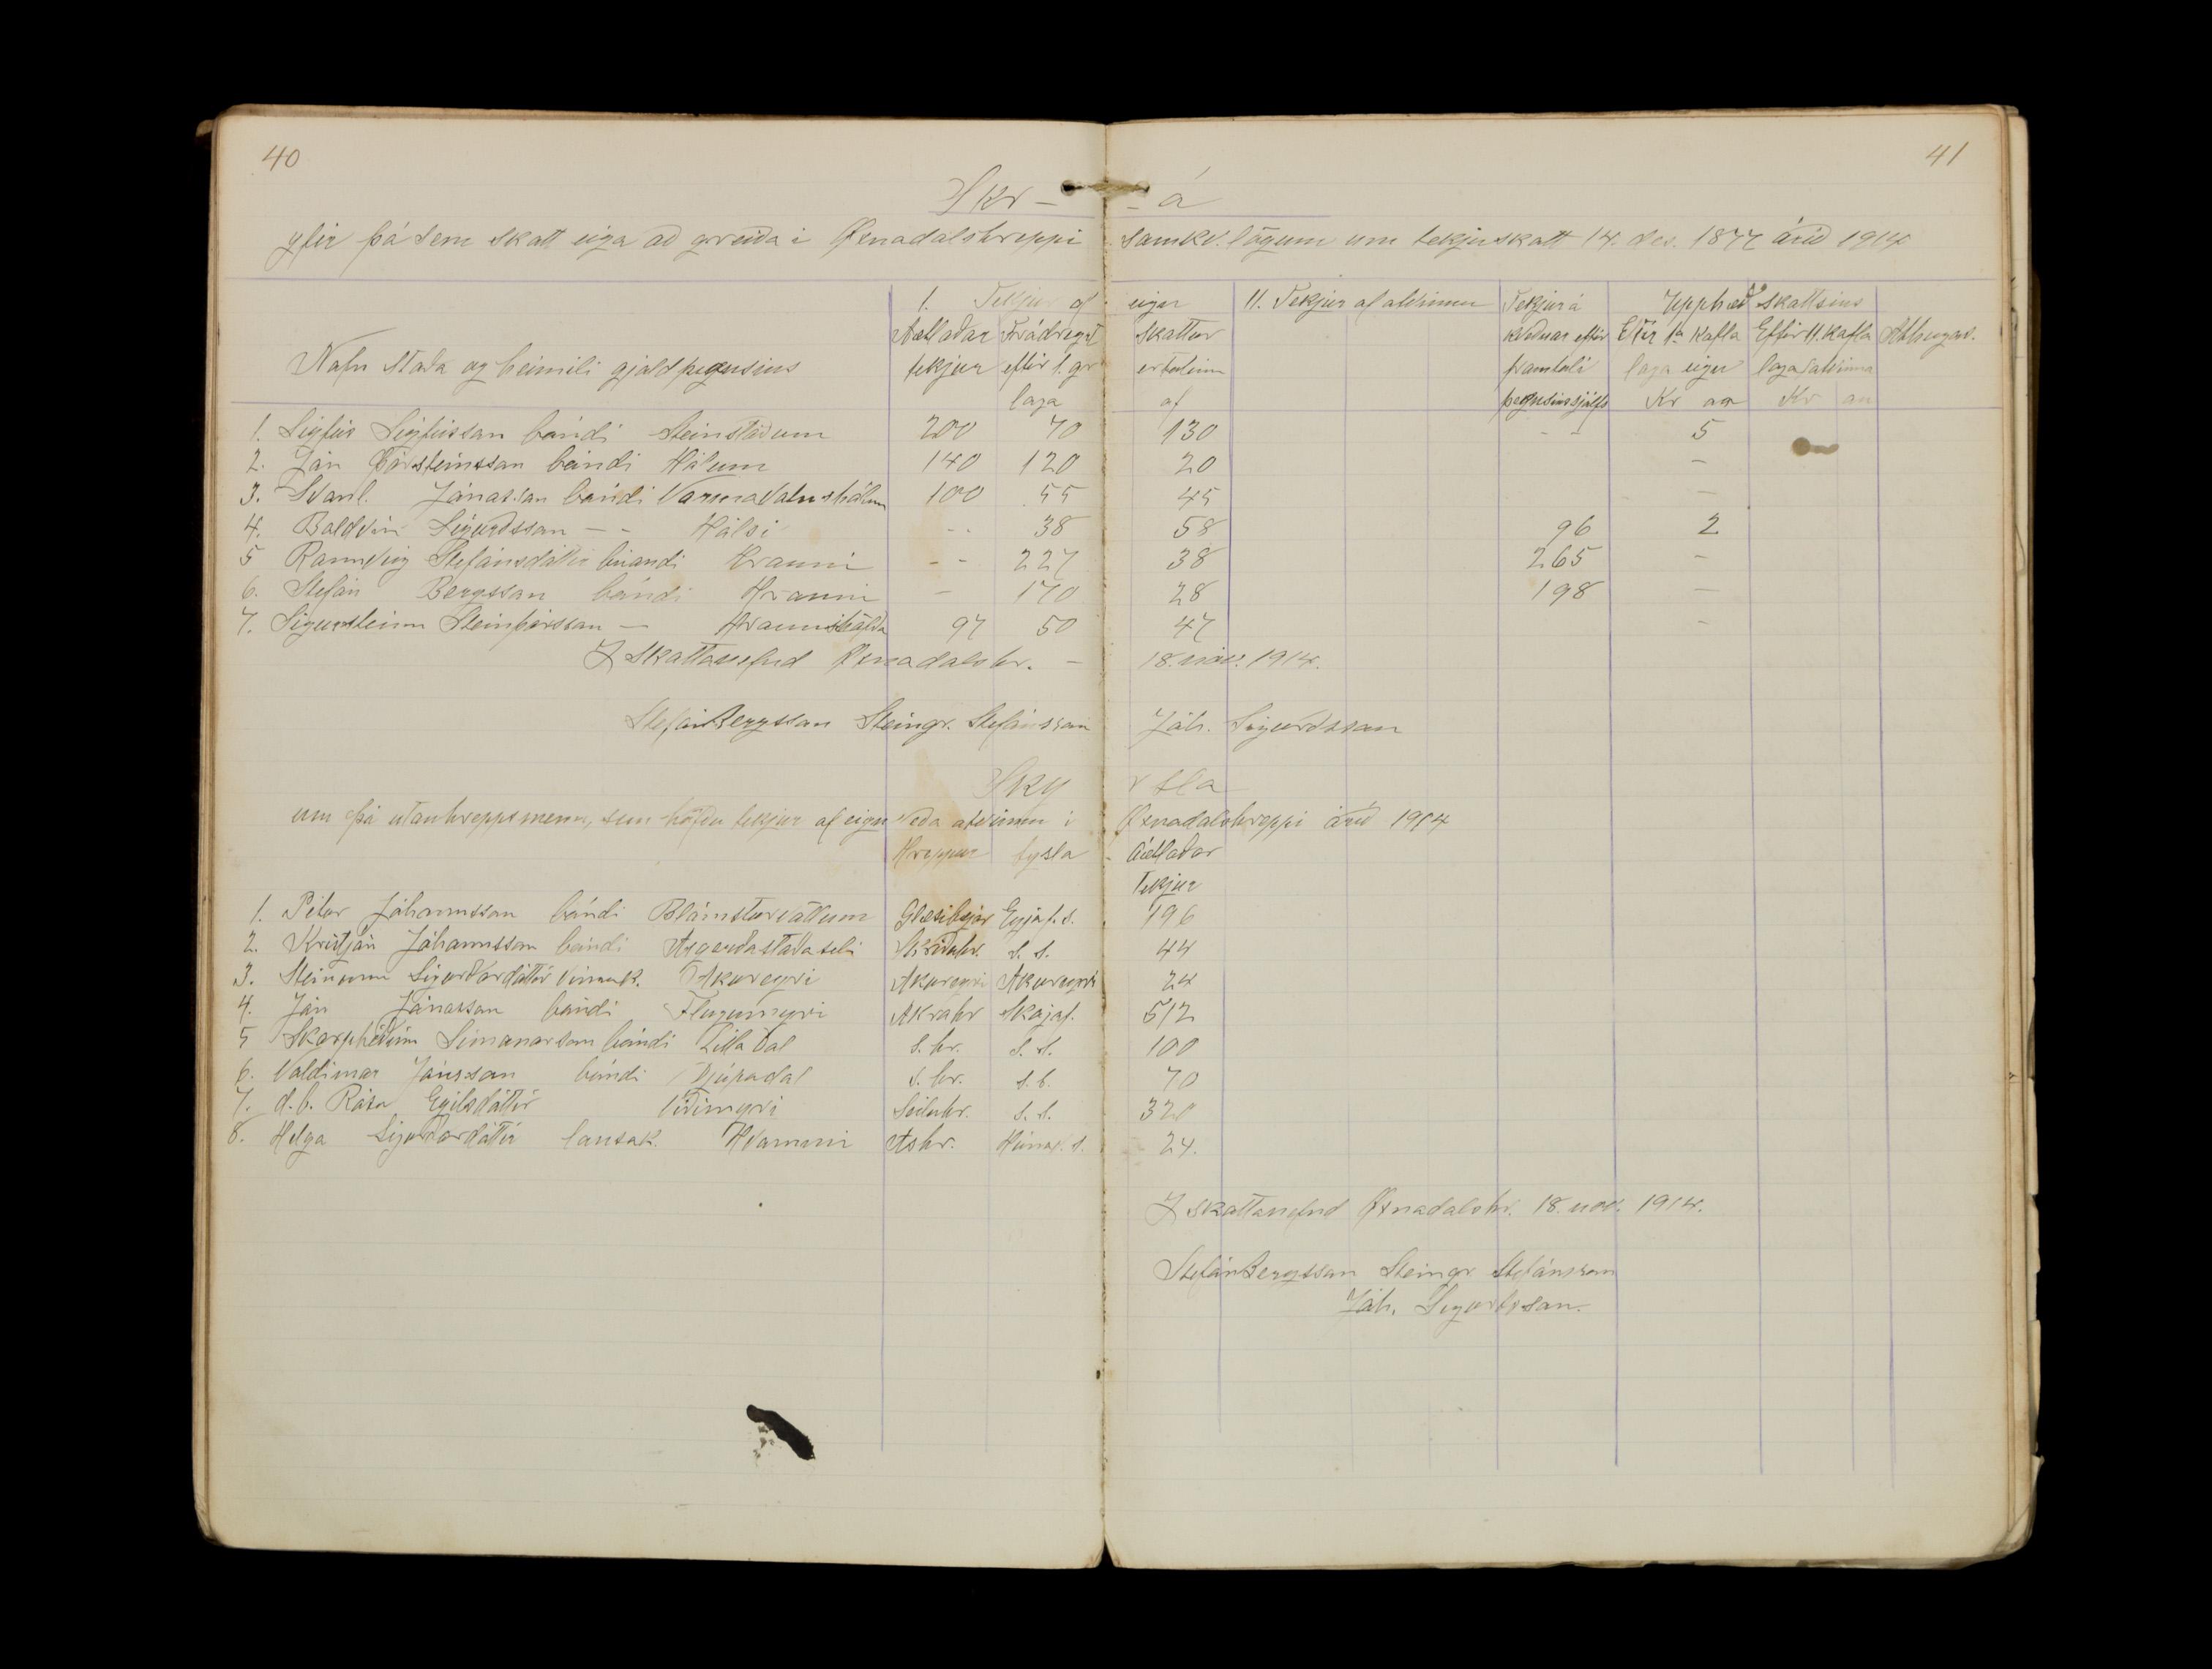 40 41
Skr - - á
yfir þá sem skatt eiga að greiða í Øxnadalshreppi samkv. lögum um tekjuskatt 14. des. 1877 árið 1914
1. Tekjur af eign 11. Tekjur af atvinnu Tekjur á Upphæð skattsins
Aætlaðar Frádregst Skattur kveðnar eftir Eftir 1a Kafla Eftir 11. Kafla Athugas.
Nafn staða og heimili gjaldþegnsins tekjur eftir 1. gr er talinn framtali laga eign laga atvinna
laga af þegnsins sjálfs Kr au Kr au
1. Sigfús Sigfússon bóndi Steinstöðum 200 70 130 - - 5
2. Jón Þorsteinsson bóndi Hólum 140 120 20 -
3. Svanl. Jónasson bóndi Varmavatnshólum 100 55 45 -
4. Baldvin Sigurðsson - - Hálsi - - 38 58 96 2
5 Rannveig Stefánsdóttir búandi Hrauni - - 227 38 265 -
6. Stefán Bergsson bóndi Hrauni - 170 28 198 -
7. Sigursteinn Steinþórsson - Hraunshöfða 97 50 47 -
Í Skattanefnd Øxnadalshr. - 18. nóv. 1914.
Stefán Bergsson Steingr. Stefánsson Jóh. Sigurðsson
Sky rsla
um þá utanhreppsmenn, sem höfðu tekjur af eign eða atvinnu í Øxnadalshreppi árið 1914
Hreppur Sýsla Áætlaðar
Tekjur
1. Petur Jóhannsson bóndi Blómsturvöllum Glæsibæjar Eyjaf.s. 196
2. Kristján Jóhannsson bóndi Asgerðastaðaseli Skriðuhr. s. s. 44
3. Steinunn Sigurðardóttir vinnuk. Akureyri Akureyri Akureyri 24
4. Jón Jónasson bóndi Flugumýri Akrahr Skagaf. 512
5 Skarphéðinn Símonarson bóndi Litladal s. hr. s. s. 100
6. Valdimar Jónsson bóndi Djúpadal s. hr. s. s. 70
7. d.b. Rósa Egilsdóttir Víðimýri Seiluhr. s. s. 320
8. Helga Sigurðardóttir lausak. Hvammi Ashr. Húnav. s. 24.
Í skattanefnd Øxnadalshr. 18. nóv. 1914.
Stefán Bergsson Steingr. Stefánsson
Jóh. Sigurðsson.